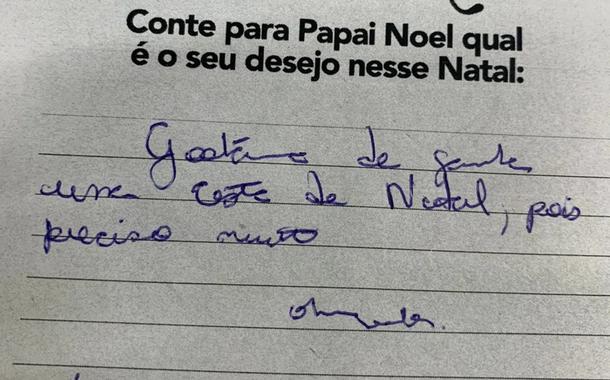 Conte para Papai Noel qual
é o seu desejo nesse Natal:
Gostaria de ganhar
uma cesta de Natal, pois
preciso muito
obrigada.